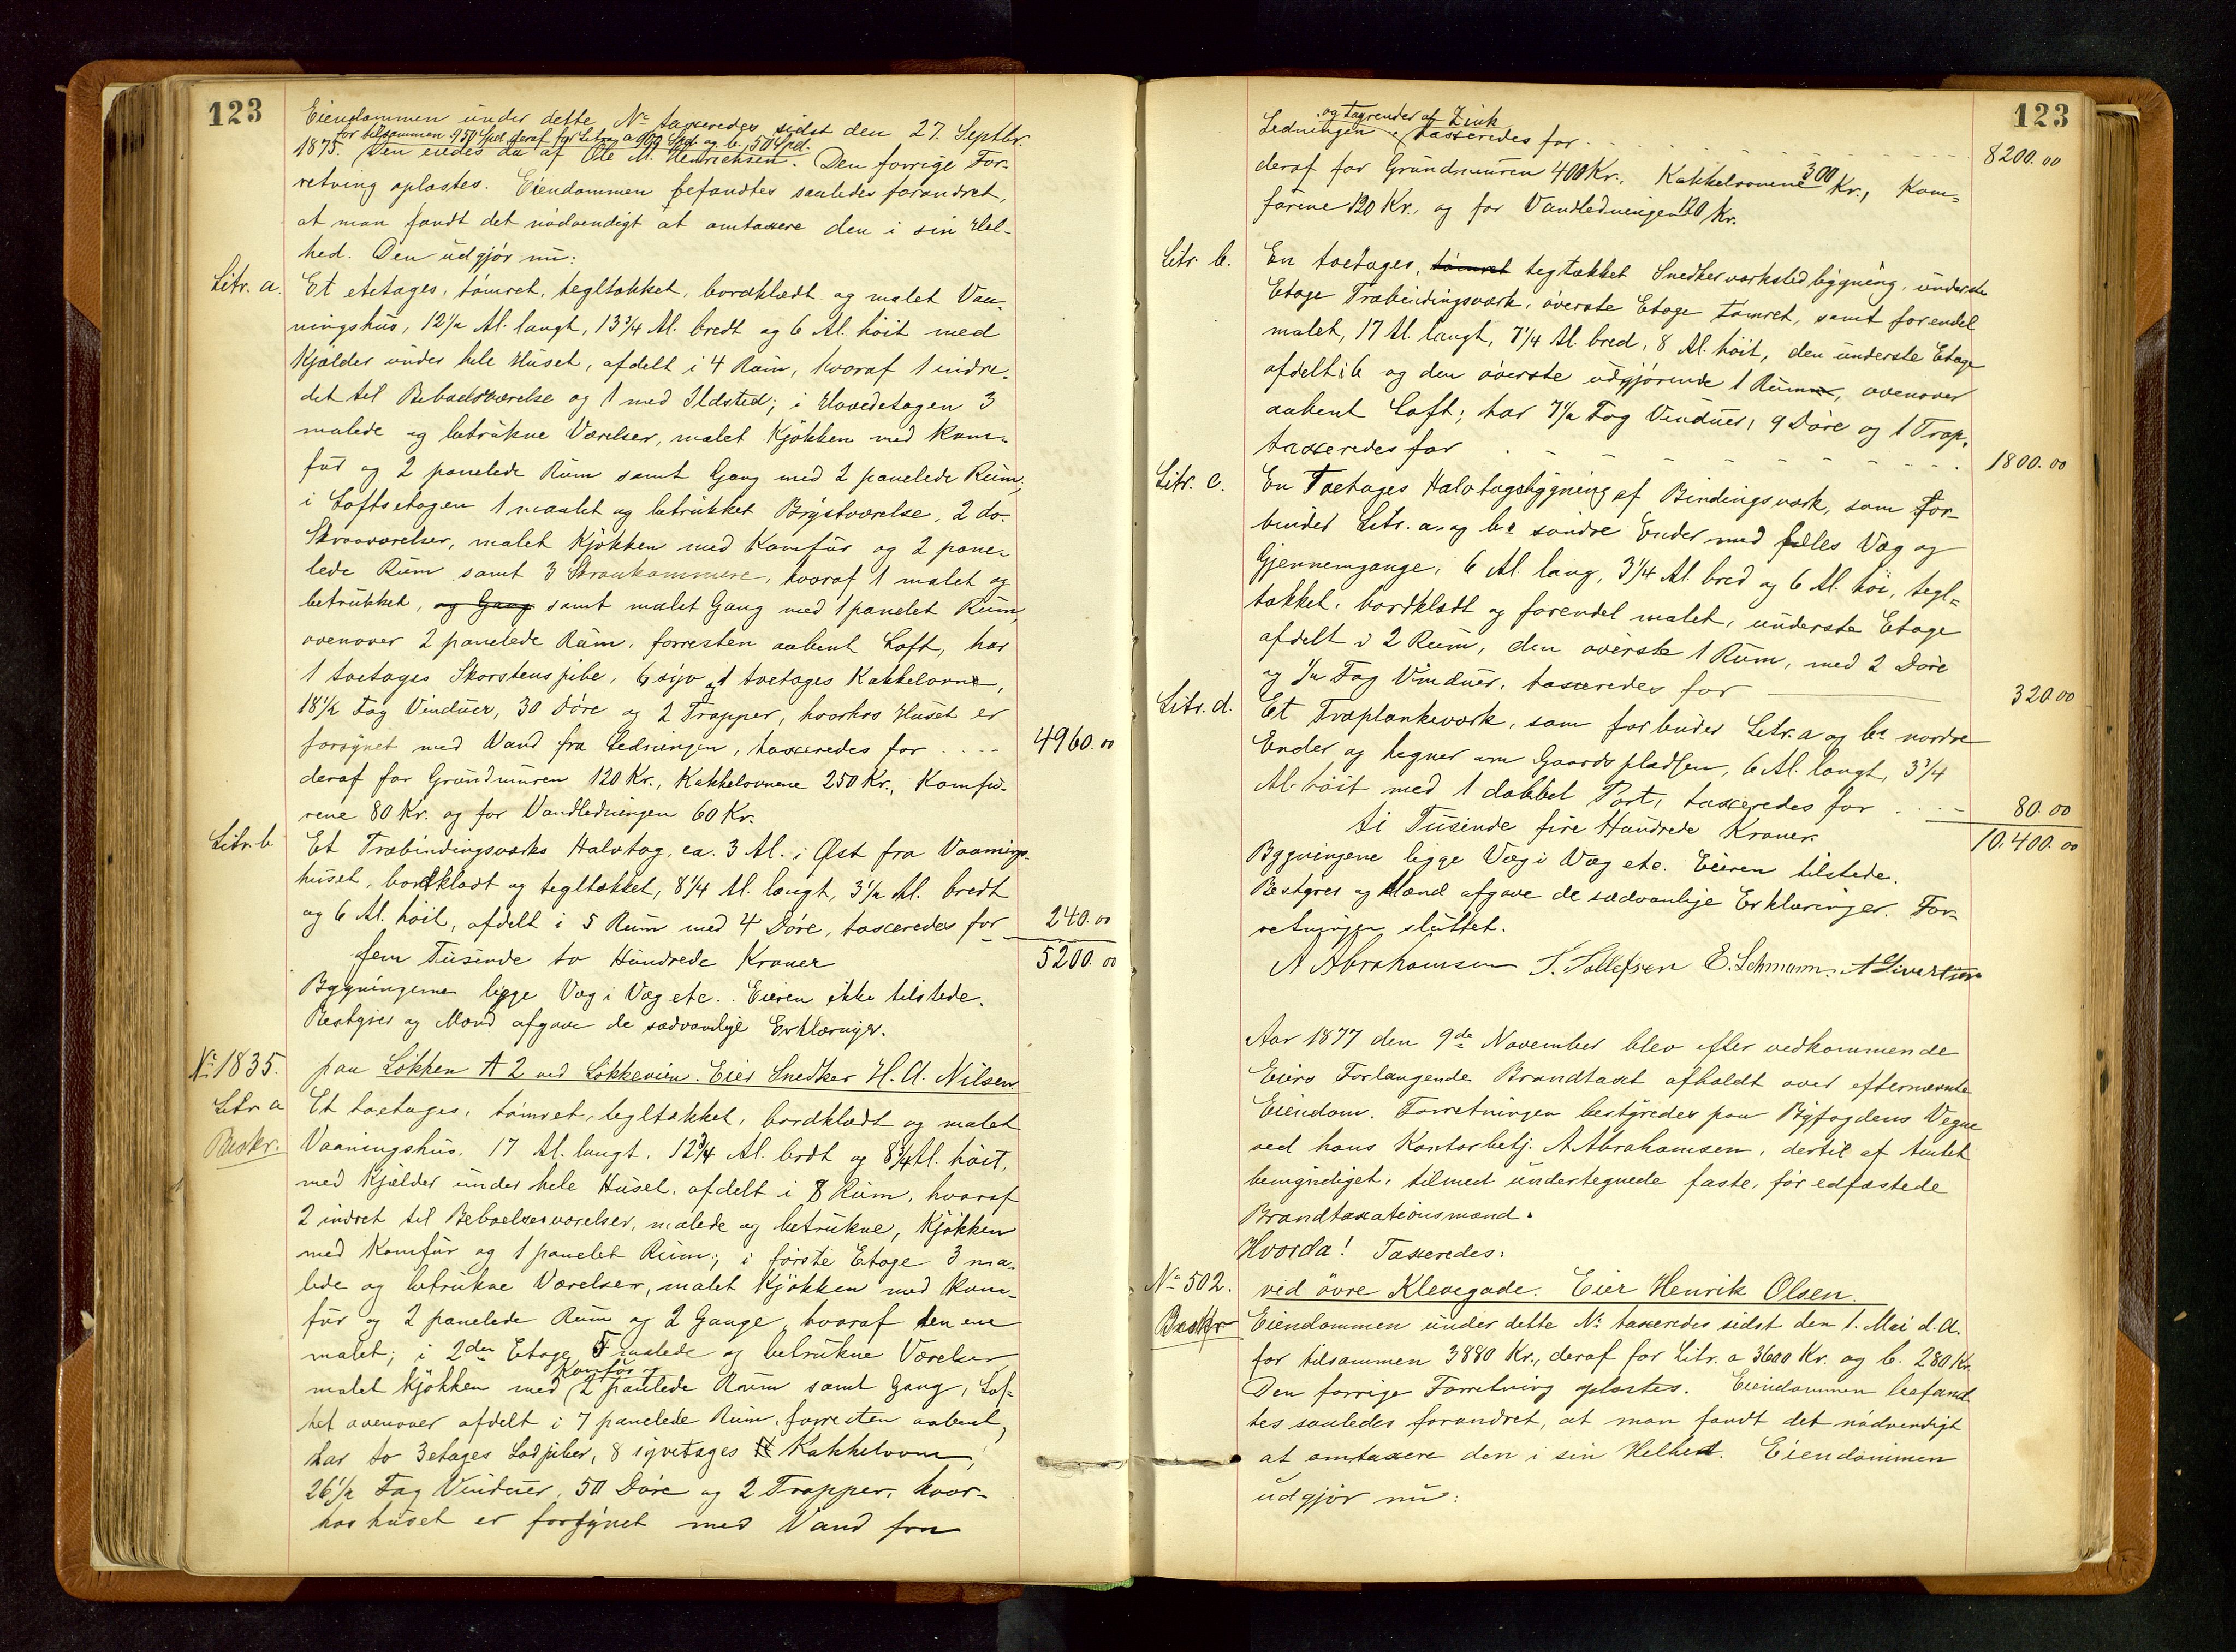 123
Eiendommen under dette No taxeredes sidst den 27. Septbr.
for tilsammen 950 Spd. deraf for Litra a 900 Spd. og b. 50 Spd.
1875. Den eiedes da af Ole M. Henrichsen. Den forrige For-
retning oplæstes. Eiendommen befandtes saaledes forandret,
at man fandt det nödvendigt at omtaxere den i sin Hel-
hed. Den udgjör nu:
Litr. a. Et etetages, tömret, tegltækket, bordklædt og malet Vaa-
ningshus, 12 1/2 Al. langt, 13 3/4 Al. bredt og 6 Al. höit med
Kjælder under hele Huset, afdelt i 4 Rum, hvoraf 1 indre-
det til Beboelsværelse og 1 med Ildsted; i Hovedetagen 3
malede og betrukne Værelser, malet Kjökken med Kom-
fur og 2 panelede Rum samt Gang med 2 panelede Rum,
i Loftsetagen 1 maalet og betrukket Brystværelse, 2 do.
Skraaværelser, malet Kjökken med Komfur og 2 pane-
lede Rum samt 3 Skraakammere, hvoraf 1 malet og
betrukket, og Gang samt malet Gang med 1 panelet Rum,
ovenover 2 panelede Rum, forresten aabent Loft, har
1 toetages Skorstenspibe, 6 og 1 toetages Kakkelovne,
18 1/2 Fag Vinduer, 30 Döre og 2 Trapper, hvorhos Huset er
forsynet med Vand fra Ledningen, taxeredes for . . . - 4960.00
deraf for Grundmuren 120 Kr., Kakkelovnene 250 Kr., Komfu-
rene 80 Kr. og for Vandledningen 60 Kr.
Litr. b Et Træbindingsværks Halvtag, ca. 3 Al. i Øst fra Vaanings-
huset, bordklædt og tegltækket, 8 1/4 Al. langt, 3 1/2 Al. bredt
og 6 Al. höit, afdelt i 5 Rum med 4 Döre, taxeredes for - 240.00
fem Tusinde to Hundrede Kroner 5200.00
Bygningerne ligge Væg i Væg etc. Eieren ikke tilstede.
Bestyrer og Mænd afgave de sædvanlige Erklæringer.
No 1835. paa Lökken A 2 ved Lökkeveien. Eier Snedker H. A. Nilsen
Litr a Et toetages, tömret, tegltækket, bordklædt og malet
Beskr. Vaaningshus, 17 Al. langt, 12 3/4 Al. bredt og 8 3/4 Al. höit,
med Kjælder under hele Huset, afdelt i 8 Rum, hvoraf
2 indret til Beboelsesværelser, malede og betrukne, Kjökken
med Komfur og 1 panelet Rum; i förste Etage 3 ma-
lede og betrukne Værelser, malet Kjökken med Kom-
fur og 2 panelede Rum og 2 Gange, hvoraf den ene
malet; i 2den Etage 5 malede og betrukne Værelser
Komfur og
malet Kjökken med 2 panlede Rum samt Gang, Lof-
tet ovenover afdelt i 7 panelede Rum, forresten aabent,
har to 3etages Lodpiber, 8 Kakkelovne,
26 1/2 Fag Vinduer, 50 Döre og 2 Trapper, hvor-
hos huset er forsynet med Vand fra
123
og tagrender af Zink
Ledningen, taxeredes for . . . . 8200.00
deraf for Grundmuren 400 Kr., Kakkelovnene 300 Kr., Kom-
furene 120 Kr., og for Vandledningen 120 Kr.
Litr. b. En toetages, tömret tegtækket Snedkerværkstedbygning, underste
Etage Træbindingsværk, överste Etage tömret, samt forendel
malet, 17 Al. langt, 7 1/4 Al. bred, 8 Al. höit, den underste Etage
afdelt i 6 og den överste udgjörende 1 Rum, ovenover
aabent Loft; har 7 1/2 Fag Vinduer, 9 Döre og 1 Trap.
taxeredes for . - - - - - 1800.00
Litr. c. En Toetages Halvtagsbygning af Bindingsværk, som for-
binder Litr. a. og bs söndre Ender med fælles Væg og
Gjennemgange, 6 Al. lang, 3 1/4 Al. bred og 6 Al. höi, tegl-
tækket, bordklædt og forendel malet, underste Etage
afdelt i 2 Rum, den överste 1 Rum, med 2 Döre
og 1/2 Fag Vinduer, taxeredes for 320.00
Litr. d. Et Træplankeværk, som forbinder Litr. a og bs nordre
Ender og hegner om Gaardspladsen, 6 Al. langt, 3 3/4
Al. höit med 1 dobbel Port, taxeredes for . . - 80.00
ti Tusinde fire Hundrede Kroner. 10.400.00
Bygningene ligge Væg i Væg etc. Eieren tilstede.
Bestyrer og Mænd afgave de sædvanlige Erklæringer. For-
retningen sluttet.
A Abrahamsen T. Tollefsen E. Lehmann. A Sivertsen
Aar 1877 den 9de November blev efter vedkommende
Eiers Forlangende Brandtaxt afholdt over efternævnte
Eiendom. Forretningen bestyredes paa Byfogdens Vegne
ved hans Kontorbetj. A Abrahamsen, dertil af Amtet
bemyndiget, tilmed undertegnede faste, för edfæstede
Brandtaxationsmænd.
Hvorda! Taxeredes:
No 502. ved övre Klevegade. Eier Henrik Olsen.
Beskr Eiendommen under dette No taxeredes sidst den 1. Mai d. A.
for tilsammen 3880 Kr., deraf for Litr. a 3600 Kr. og b. 280 Kr.
Den forrige Forretning oplæstes. Eiendommen befand-
tes saaledes forandret, at man fandt det nödvendigt
at omtaxere den i sin Helhed. Eiendommen
udgjör nu: